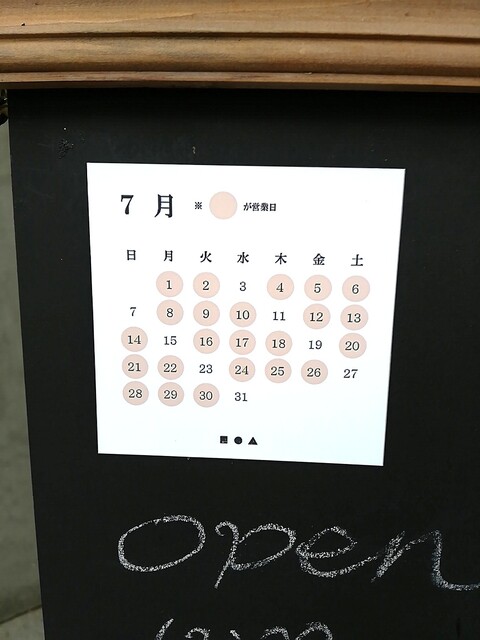 7月 ※ が営業日
日 月 火 水 木 金 土
1 2 3 4 5 6
7 8 9 10 11 12 13
14 15 16 17 18 19 20
21 22 23 24 25 26 27
28 29 30 31
open